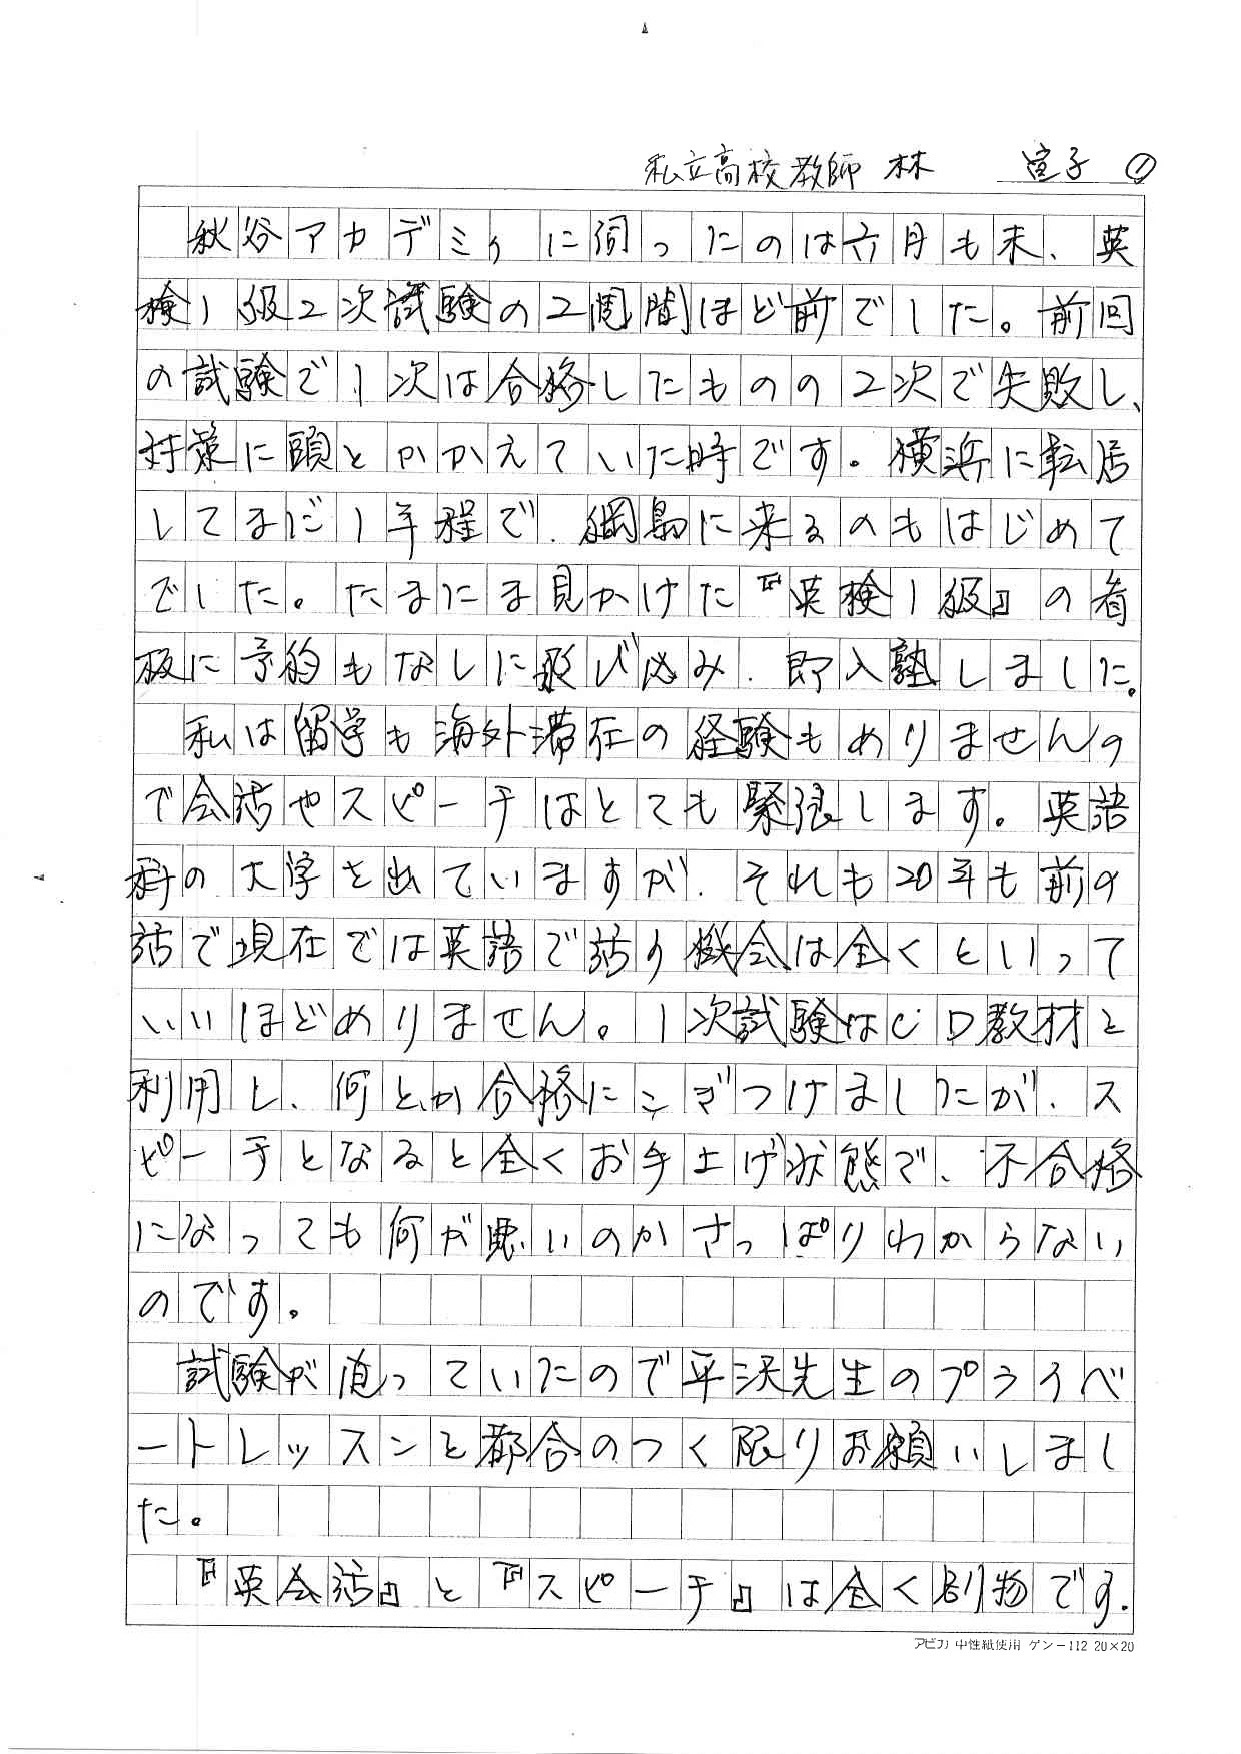 私立高校教師 林 宣子 ①
秋谷アカデミィに伺ったのは六月も末、英
検1級2次試験の2週間ほど前でした。前回
の試験で1次は合格したものの2次で失敗し、
対策に頭をかかえていた時です。横浜に転居
してまだ1年程で、綱島に来るのもはじめて
でした。たまたま見かけた『英検1級』の看
板に予約もなしに飛び込み、即入塾しました。
私は留学も海外滞在の経験もありませんの
で会話やスピーチはとても緊張します。英語
科の大学を出ていますが、それも20年も前の
話で現在では英語で話す機会は全くといって
いいほどありません。1次試験はCD教材を
利用し、何とか合格にこぎつけましたが、ス
ピーチとなると全くお手上げ状態で、不合格
になっても何が悪いのかさっぱりわからない
のです。
試験が迫っていたので平沢先生のプライベ
ートレッスンを都合のつく限りお願いしまし
た。
『英会話』と『スピーチ』は全く別物です。
アピカ 中性紙使用 ゲン-112 20×20